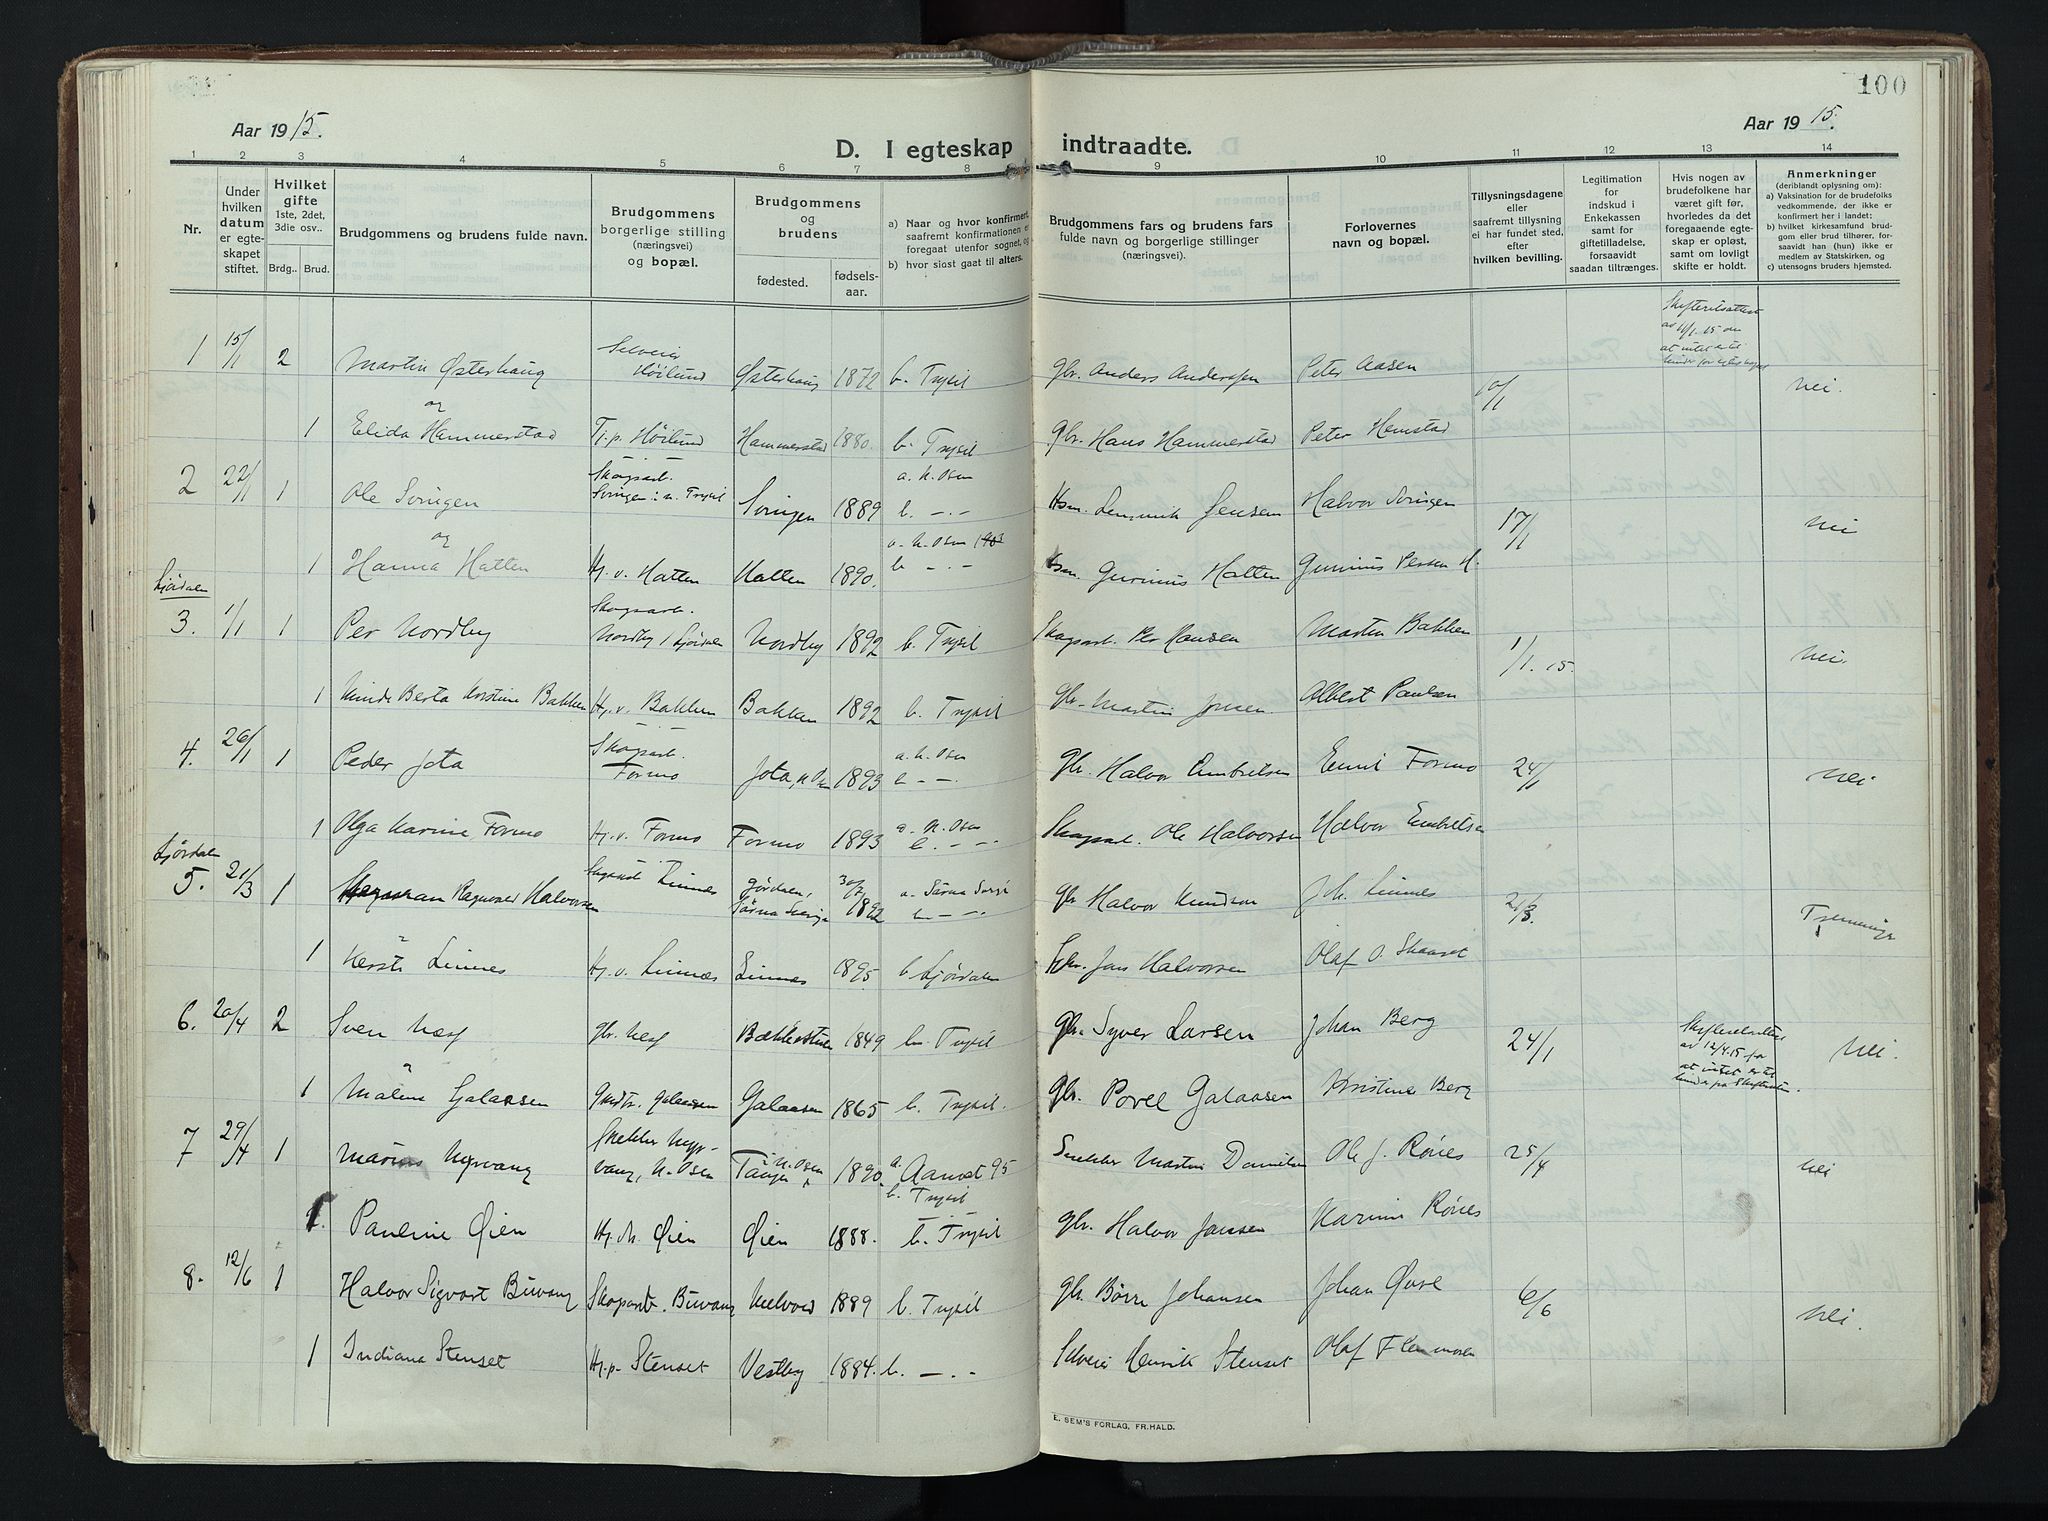 100
Aar 1915.
Aar 1915.
D. I egteskap indtraadte.
1 2 3 4 5 6 7 8 9 10 11 12 13 14
Nr.
Under hvilken datum er egteskapet stiftet.
Hvilket gifte 1ste, 2det, 3die osv..
Brdg.. Brud.
Brudgommens og brudens fulde navn.
Brudgommens borgerlige stilling (næringsvei) og bopæl.
Brudgommens og brudens
fødested.
fødselsaar.
a) Naar og hvor konfirmert, saafremt konfirmationen er foregaat utenfor sognet, og
b) hvor sidst gaat til alters.
Brudgommens fars og brudens fars fulde navn og borgerlige stillinger (næringsvei).
Forlovernes navn og bopæl.
Tillysningsdagene eller saafremt tillysning ei har fundet sted, efter hvilken bevilling.
Legitimation for indskud i Enkekassen samt for giftetilladelse, forsaavidt saadan tiltrænges.
Hvis nogen av brudefolkene har været gift før, hvorledes da det foregaaende egteskap er opløst, samt om lovligt skifte er holdt.
Anmerkninger (deriblandt oplysning om):
a) Vaksination for de brudefolks vedkommende, der ikke er konfirmert her i landet;
b) hvilket kirkesamfund brudgom eller brud tilhører, forsaavidt han (hun) ikke er medlem av Statskirken, og
c) utensogns bruders hjemsted.
1 15/1 2 Martin Østerhaug Selveier Høilund Østerhaug 1872 b. Trysil Gbr. Anders Andersen Peter Aasen 10/1 nei.
og
1 Elida Hammerstad Tj.p. Høilund Hammerstad 1880. b. Trysil Gbr. Hans Hammerstad Peter Hemstad
2 22/1 1 Ole Svingen Skogsarb. Svingen i n. Trysil Svingen 1889 a. N. Osen b. -.- Hsm. Jensen Halvor Svingen 17/1 nei
og
1 Hanna Hatten Hj. v. Hatten Hatten 1890. a. N. Osen b. -.- Hsm. Gunnius Hatten Gunnius Persen H.
Ljørdalen
3. 1/1 1 Per Nordby Skogsarb. Nordby i Ljørdalen Nordby 1892 b. Trysil Skogsarb. Per Hansen Martin Bakken 1/1. 15. nei.
1 Berta Kirstine Bakken Hj. v. Bakken Bakken 1892 b. Trysil Gbr. Martin Jonsen. Albert Paulsen
4. 26/1 1 Peder Jota Skogsarb. Formo Jota, N. Osen 1893 a. N. Osen b. - - Gbr. Halvor Embretsen Emil Formo 24/1 nei
1 Olga Karine Formo Hj. v. Formo Formo 1893 a. N. Osen b. - - Skogsarb. Ole Halvorsen Halvor Embretsen
Ljørdalen
5. 21/3 1 Ragnvald Halvorsen Skogsarb. Linnes Gjørdalen, Särna Sverige 30/7 1892 a. Särna Sverige b. - - Gbr Halvor Knudson Joh. Linnes 21/3.
1 Kersti Linnes Hj. v. Linnes Linnes 1895 b. Ljørdalen Gbr. Jens Halvorsen Olaf O. Skaaret
6. 20/4 2 Sven Næss gbr. Næss 1849 b. Trysil Gbr. Syver Larsen Johan Berg 24/1 Skifteretsattest av 12/4.15 for at intet er til hinder paa Skifteretten. nei.
1 Malene Galaasen Galaasen 1865 b. Trysil. Gbr. Povel Galaasen Kristine Berg
7 29/4 1 Marius Nyvang Snekker Nyvang, N. Osen N. Osen 1890. a. Aamot 95 b. Trysil Snekker Martin Danielsen Ole J. Rønes 25/4 nei
1. Pauline Øien Hj. h. Øien Øien 1888. b. Trysil gbr. Halvor Jonssen Karine Rønes
8. 12/6 1 Halvor Sigvart Buvang Skogsarb. Buvang 1889 b. Trysil gbr. Børre Johansen Johan Øvre 6/6 nei.
1 Indiana Stenset Hj. p. Stenset Vestby 1884. b. -.- Selveier Henrik Stenset Olaf Flenmoen
E. SEM'S FORLAG, FR.HALD.